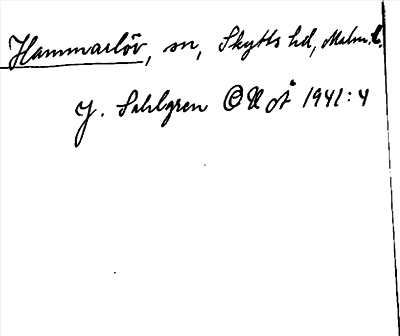 Hammarlöv, sn, Skytts hd, Malm. l.
J. Sahlgren ONoÅ 1941:4